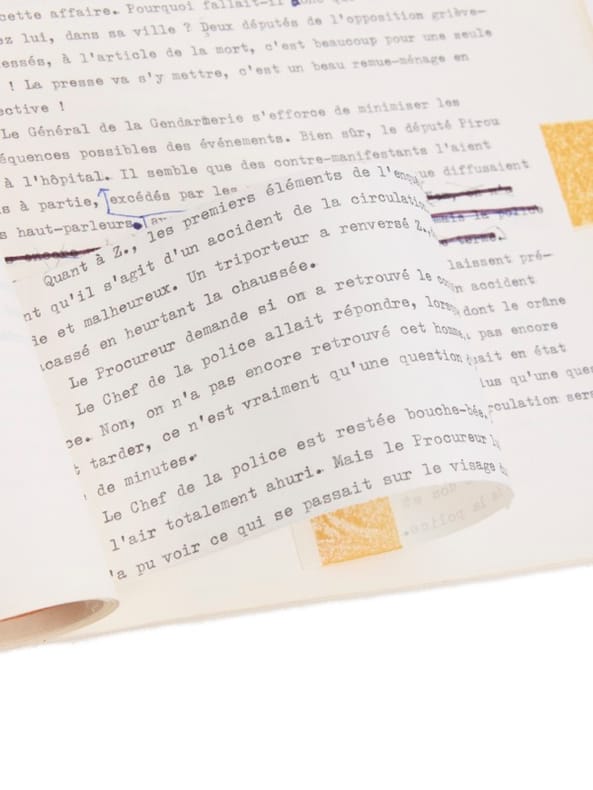 cette affaire. Pourquoi fallait-il
ez lui, dans sa ville ? Deux députés de l'opposition griève-
essés, à l'article de la mort, c'est beaucoup pour une seule
! La presse va s'y mettre, c'est un beau remue-ménage en
ective !
Le Général de la Gendarmerie s'efforce de minimiser les
équences possibles des événements. Bien sûr, le député Pirou
à l'hôpital. Il semble que des contre-manifestants l'aient
s à partie, excédés par les
ue diffusaient
s haut-parleurs
Quant à Z., les premiers éléments de l'enquê
nt qu'il s'agit d'un accident de la circulation
ie et malheureux. Un triporteur a renversé Z.,
cassé en heurtant la chaussée.
Le Procureur demande si on a retrouvé le con
Le Chef de la police allait répondre, lorsq
ce. Non, on n'a pas encore retrouvé cet homme,
t tarder, ce n'est vraiment qu'une question
de minutes.
Le Chef de la police est restée bouche-bée,
l'air totalement ahuri. Mais le Procureur
'a pu voir ce qui se passait sur le visage
laissent pré-
n accident
dont le crâne
pas encore
uait en état
lus qu'une ques
rculation sera